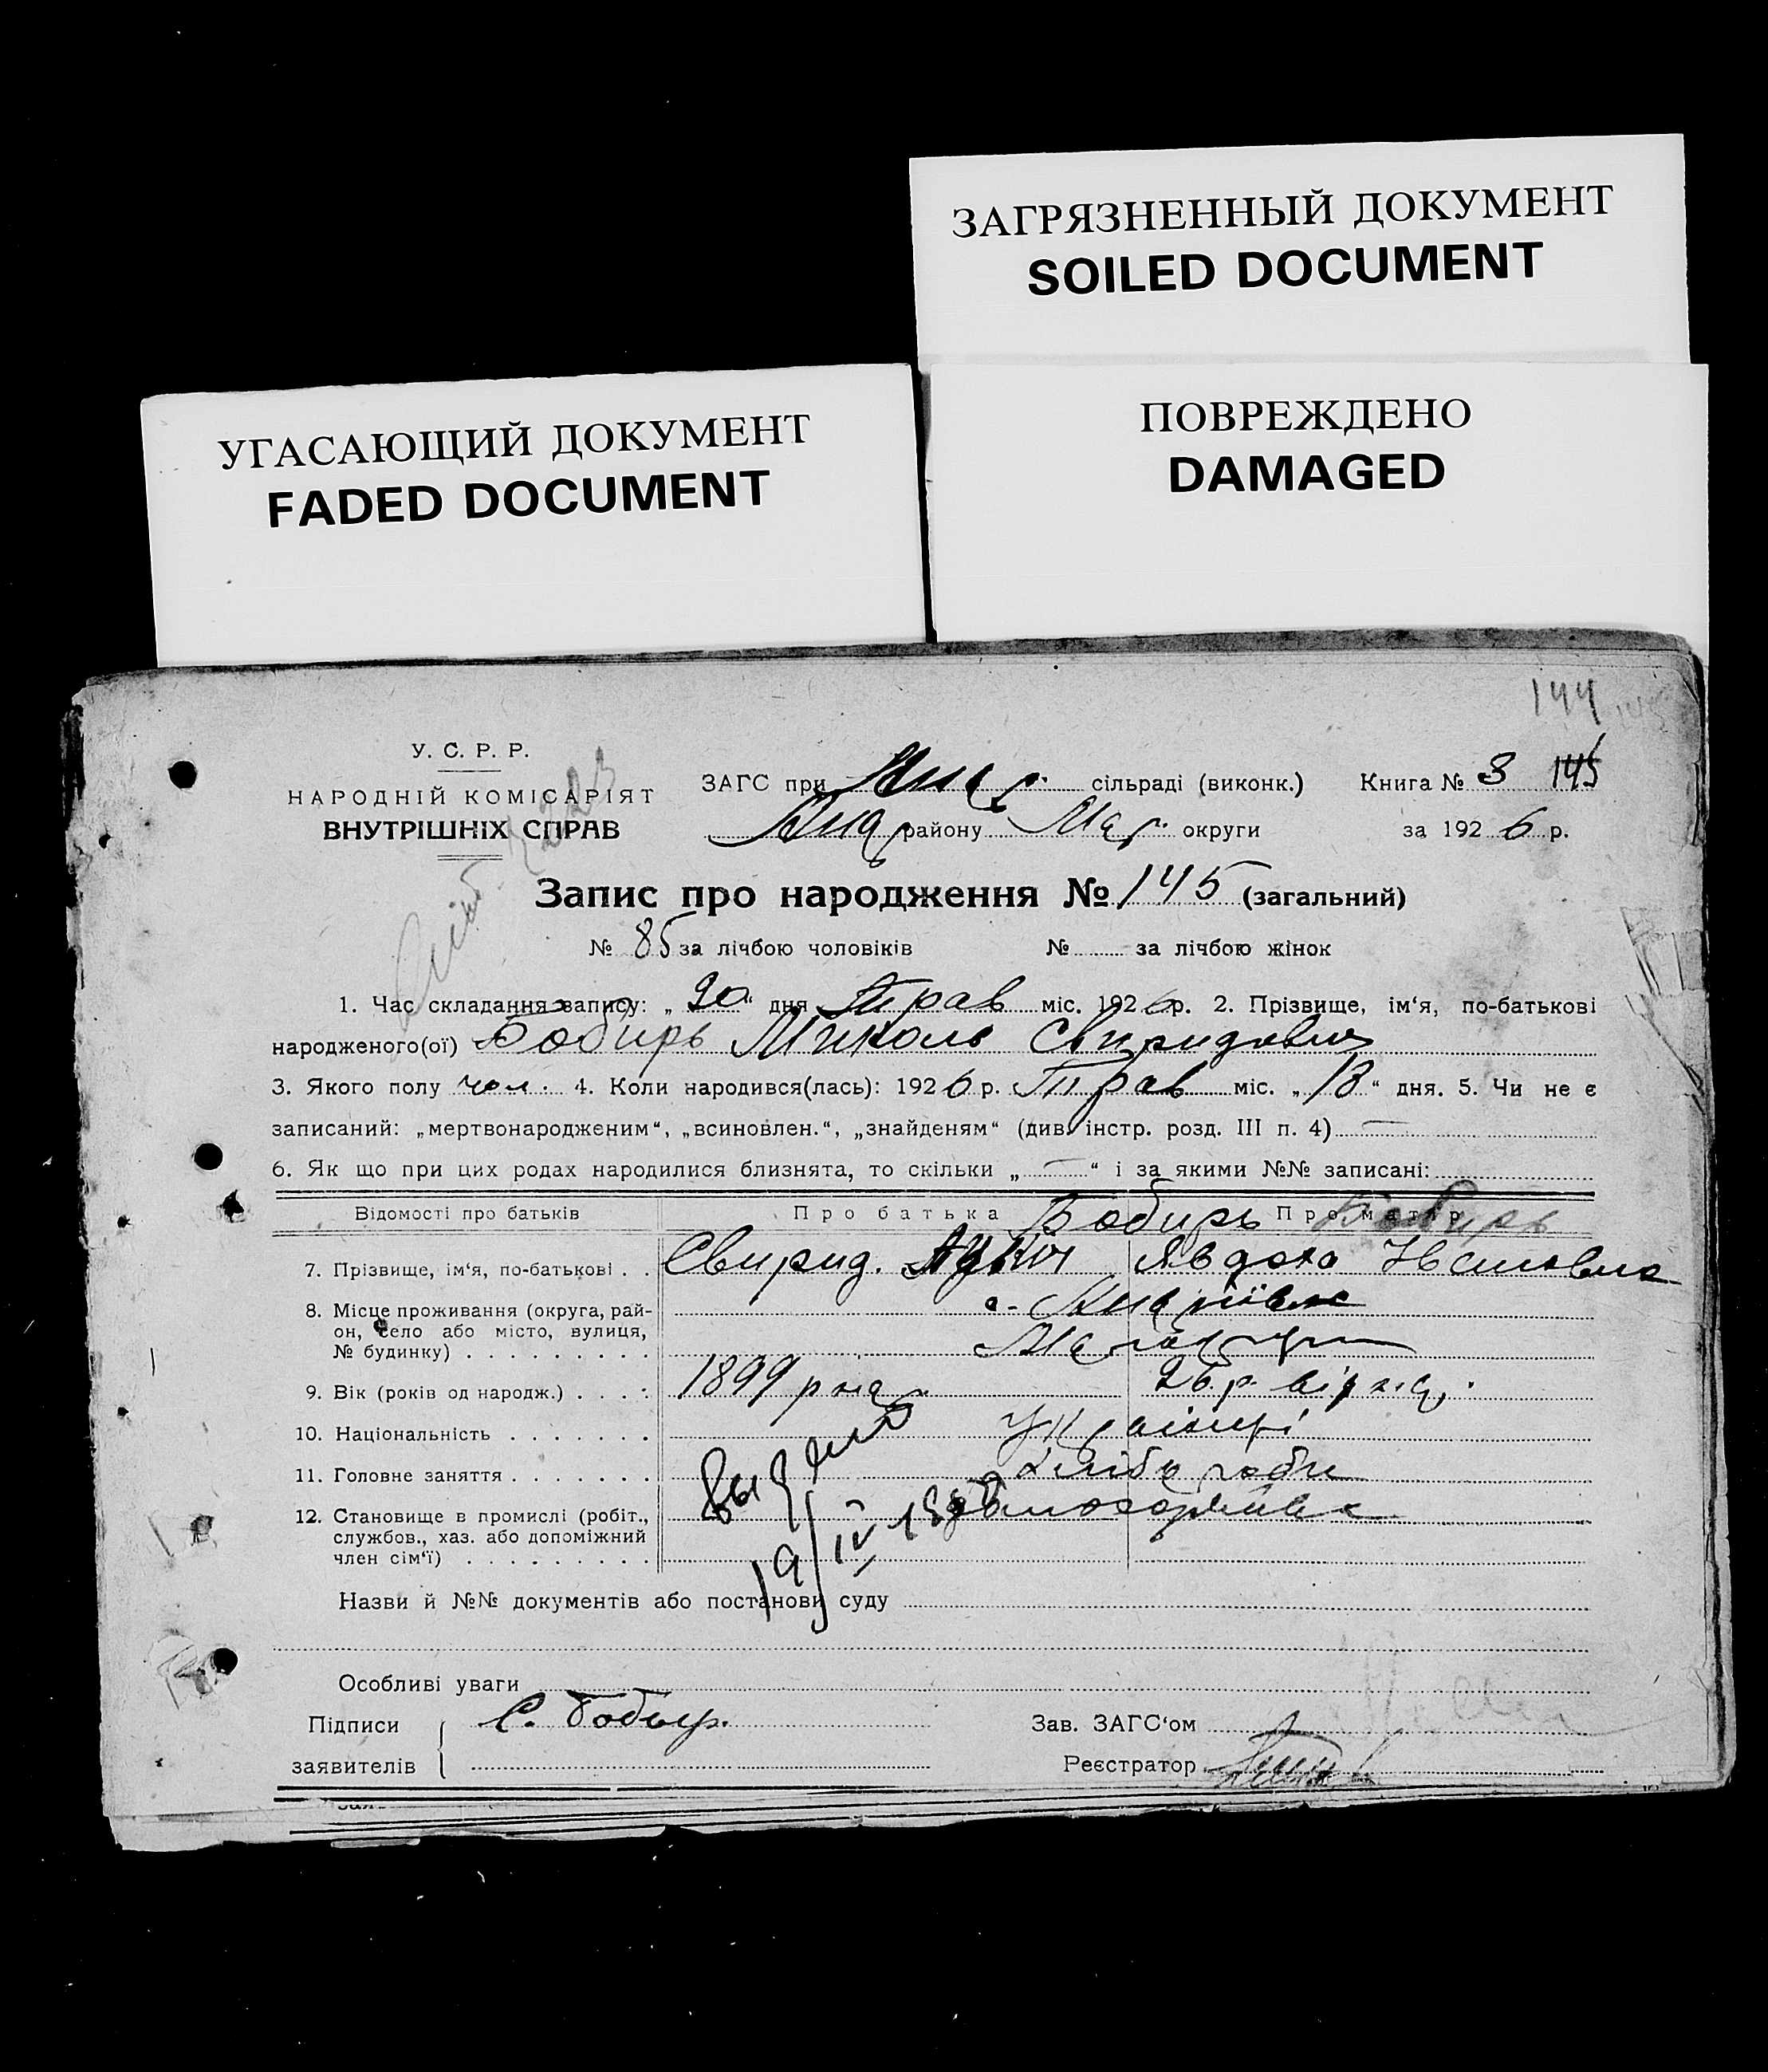 ЗАГРЯЗНЕННЫЙ ДОКУМЕНТ
SOILED DOCUMENT
УГАСАЮЩИЙ ДОКУМЕНТ
FADED DOCUMENT
ПОВРЕЖДЕНО
DAMAGED
144 145
У. С. Р. Р.
НАРОДНІЙ КОМІСАРІЯТ
ВНУТРІШНІХ СПРАВ
ЗАГС при сільраді (виконк.) Книга № 3 145
району Мар. округи за 1926 р.
Запис про народження № 145 (загальний)
№ 85 за лічбою чоловіків № за лічбою жінок
1. Час складання запису: „20“ дня Трав міс. 1926 р. 2. Прізвище, ім‘я, по-батькові
народженого(ої) Бобирь Микола Свиридович
3. Якого полу чол. 4. Коли народився(лась): 1926 р. Трав міс. „18“ дня. 5. Чи не є
записаний: „мертвонародженим“, „всиновлен.“, „знайденям“ (див. інстр. розд. III п. 4) —
6. Як що при цих родах народилися близнята, то скільки „—“ і за якими №№ записані:
Відомості про батьків Про батька Бобирь Про матір Бобирь
7. Прізвище, ім‘я, по-батькові . . Свирид. Явдоха
8. Місце проживання (округа, рай-
он, село або місто, вулиця,
№ будинку) . . . . . . . . .
9. Вік (років од народж.) . . . . 1899 року 26 р.
10. Національність . . . . . . . Українці
11. Головне заняття . . . . . . . хлібороби
12. Становище в промислі (робіт.,
службов., хаз. або допоміжний
член сім‘ї) . . . . . . . . .
19/IV
Назви й №№ документів або постанови суду
Особливі уваги
Підписи С. Бобыр. Зав. ЗАГС‘ом
заявителів Реєстратор